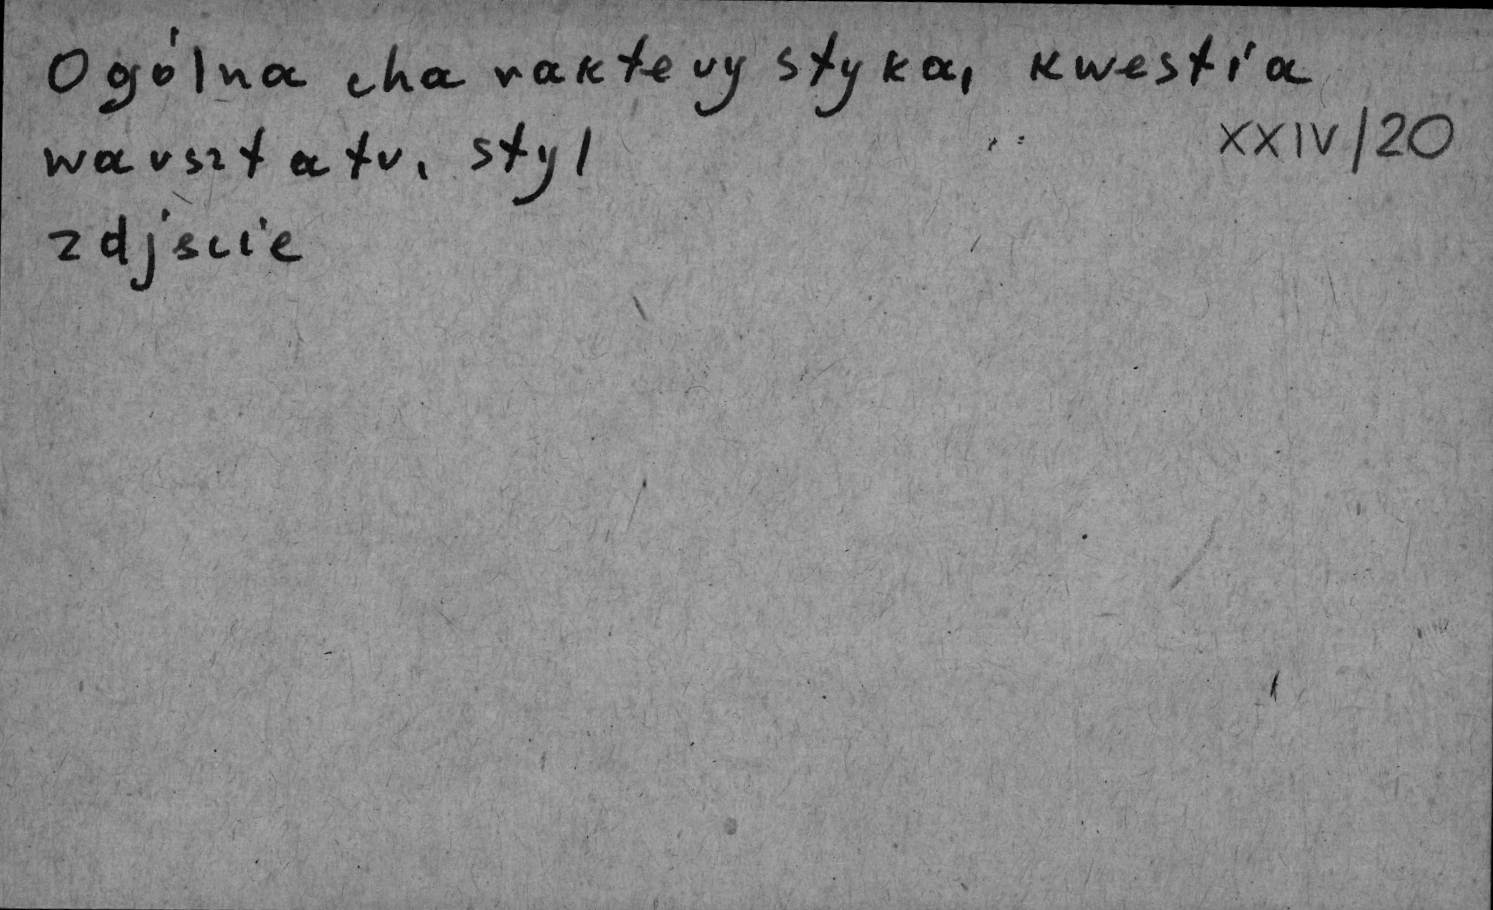 Ogólna charakterystyka, kwestia
warsztatu, styl
XXIV/20
zdjście